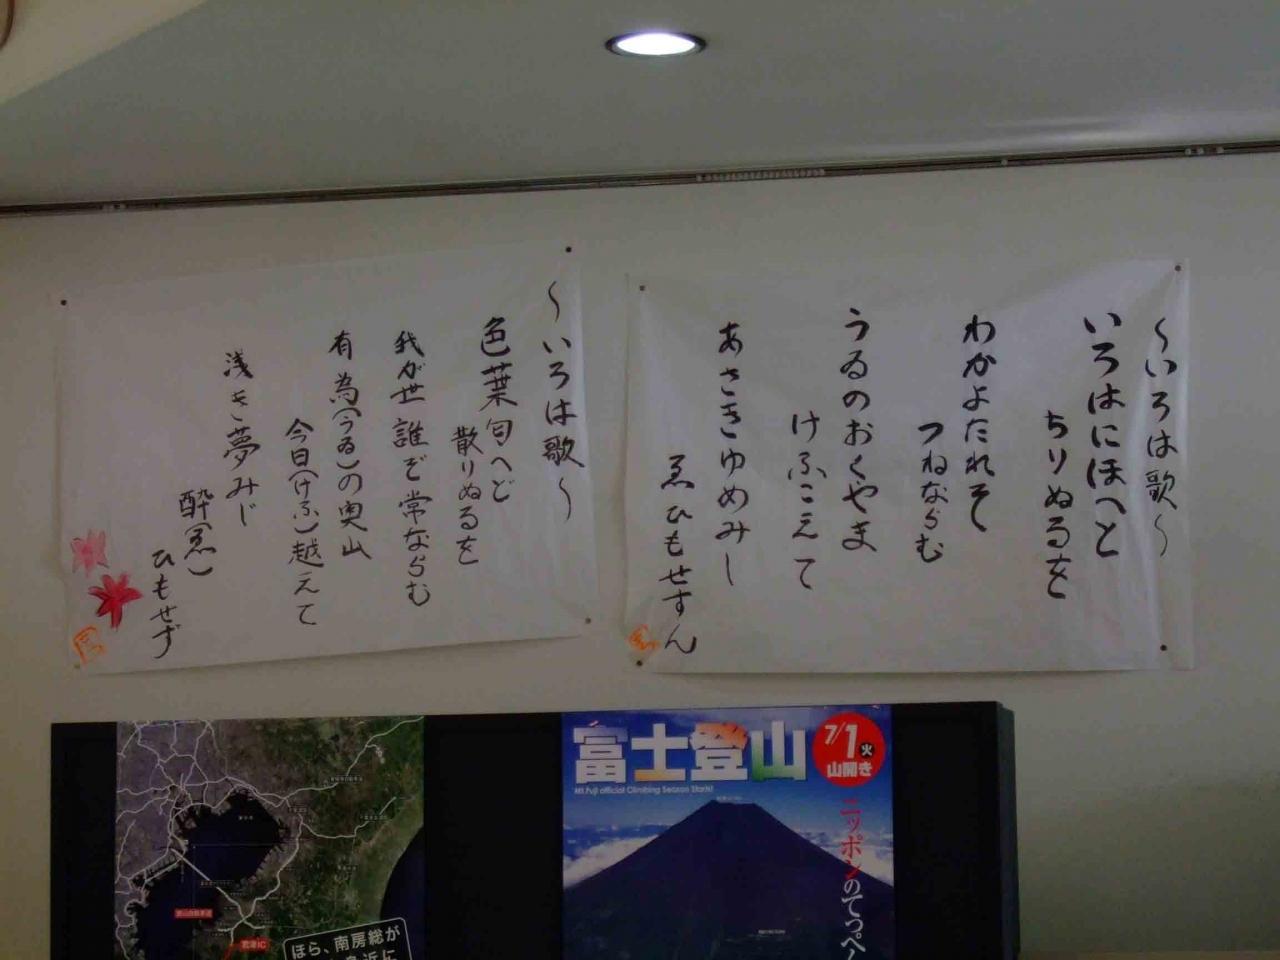 ～いろは歌～
いろはにほへと
ちりぬるを
わかよたれそ
つねならむ
うゐのおくやま
けふこえて
あさきゆめみし
ゑひもせすん
～いろは歌～
色葉匂へど
散りぬるを
我が世誰ぞ常ならむ
有為(うゐ)の奥山
今日(けふ)越えて
浅き夢みじ
酔(ゑ)
ひもせず
富士登山
Mt.Fuji official Climbing Season Starts!
7/1火
山開き
ニッポンのてっぺん
館山自動車道
君津IC
ほら、南房総が